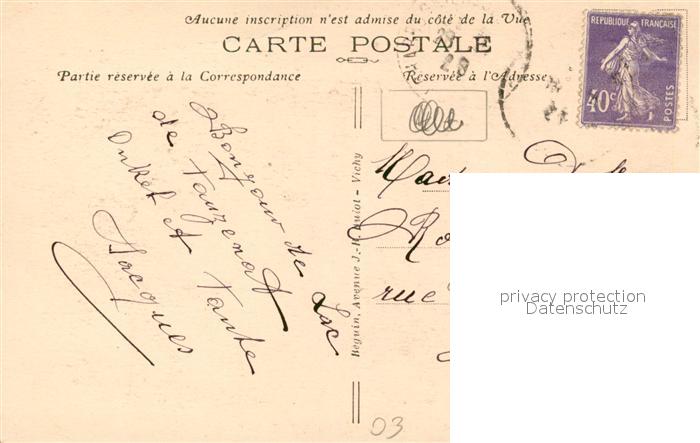 Aucune inscription n'est admise du côté de la Vue
CARTE POSTALE
Partie réservée à la Correspondance
Réservée à l'Adresse
REPUBLIQUE FRANÇAISE
40c
POSTES
Bonjour de Lac
de Tauzenat
Onkel et Tante
Jacques
Béguin, Avenue J.- Guiot - Vichy
rue
privacy protection
Datenschutz
03